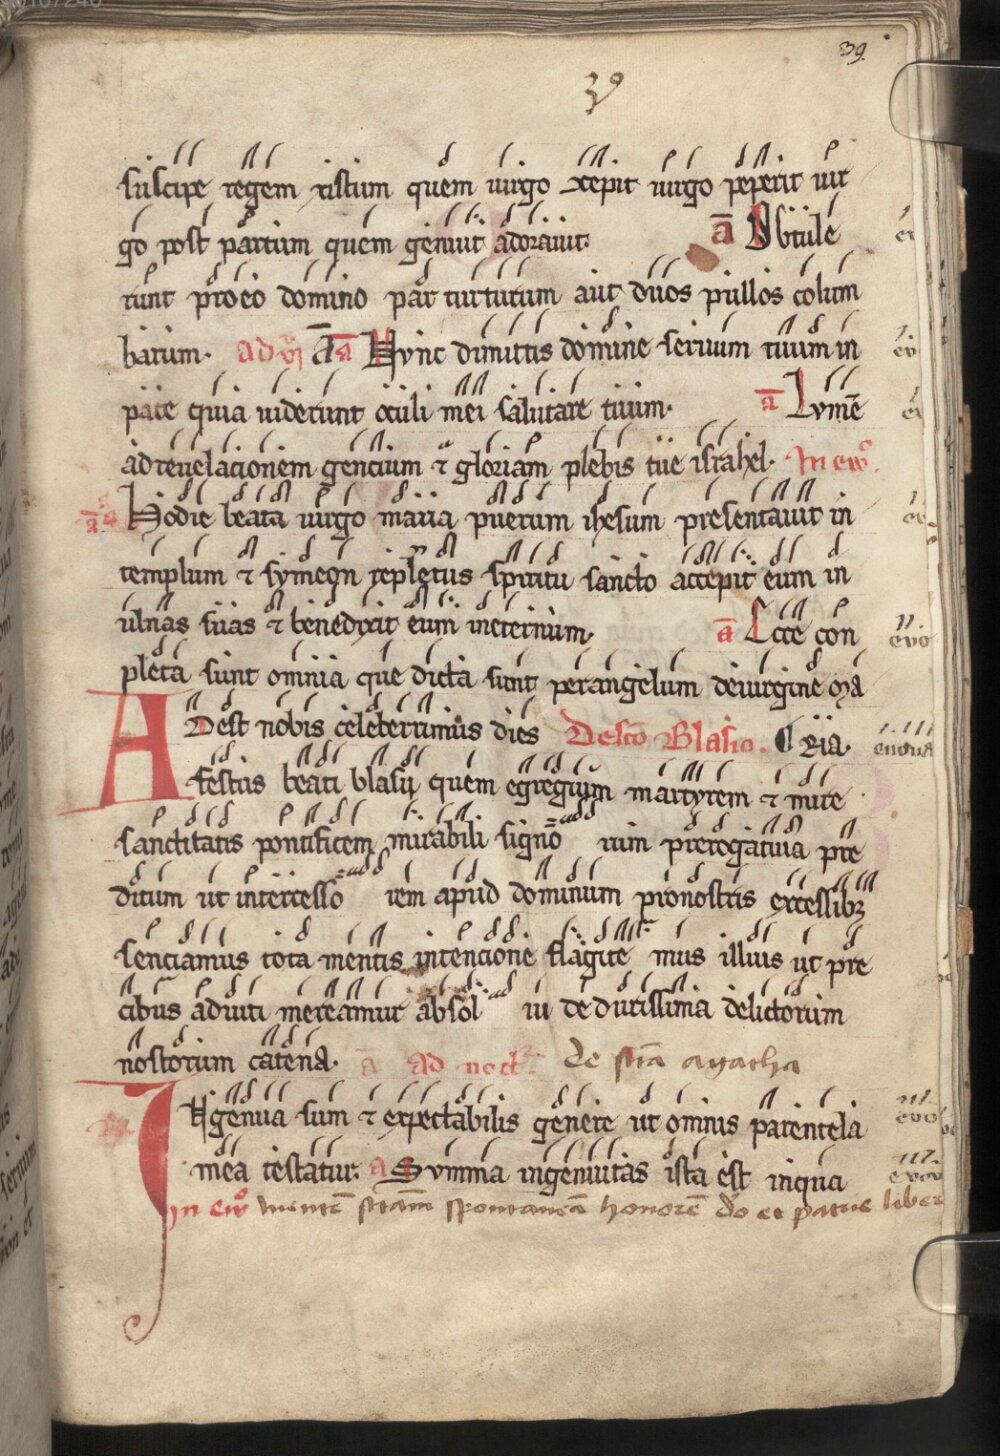 39.
39
suscipe regem xistum quem uirgo xcepit uirgo peperit uir
go post partum quem genuit adorauit. ā Obtule
runt pro eo domino par turturum aut duos pullos colum
barum. ad Ā ā Nvnc dimittis domine seruum tuum in
pace quia uiderunt oculi mei salutare tuum. ā Lvmē
ad reuelacionem gencium ⁊ gloriam plebis tue israhel. In ew̄
ā Hodie beata uirgo maria puerum ihesum presentauit in
templum ⁊ symeon repletus spiritu sancto accepit eum in
ulnas suas ⁊ benedixit eum ineternum. ā Ecce con
pleta sunt omnia que dicta sunt perangelum deuirgine ma
ADest nobis celeberrimus dies De sco Blasio. ria.
festus beati blasij quem egregium martyrem ⁊ mire
sanctitatis pontificem mirabili signo rum prerogatiua pre
ditum ut intercesso rem apud dominum pronostris excessibꝫ
senciamus tota mentis intencione flagite mus illius ut pre
cibus adiuti mereamur absol ui de durissima delictorum
nostrorum catena. ā ad noct. de scā agatha
INgenua sum ⁊ expectabilis genere ut omnis parentela
mea testatur. a Svmma ingenuitas ista est inqua
In ew̄ mentē scām spontaneā honorē do et patrie liber